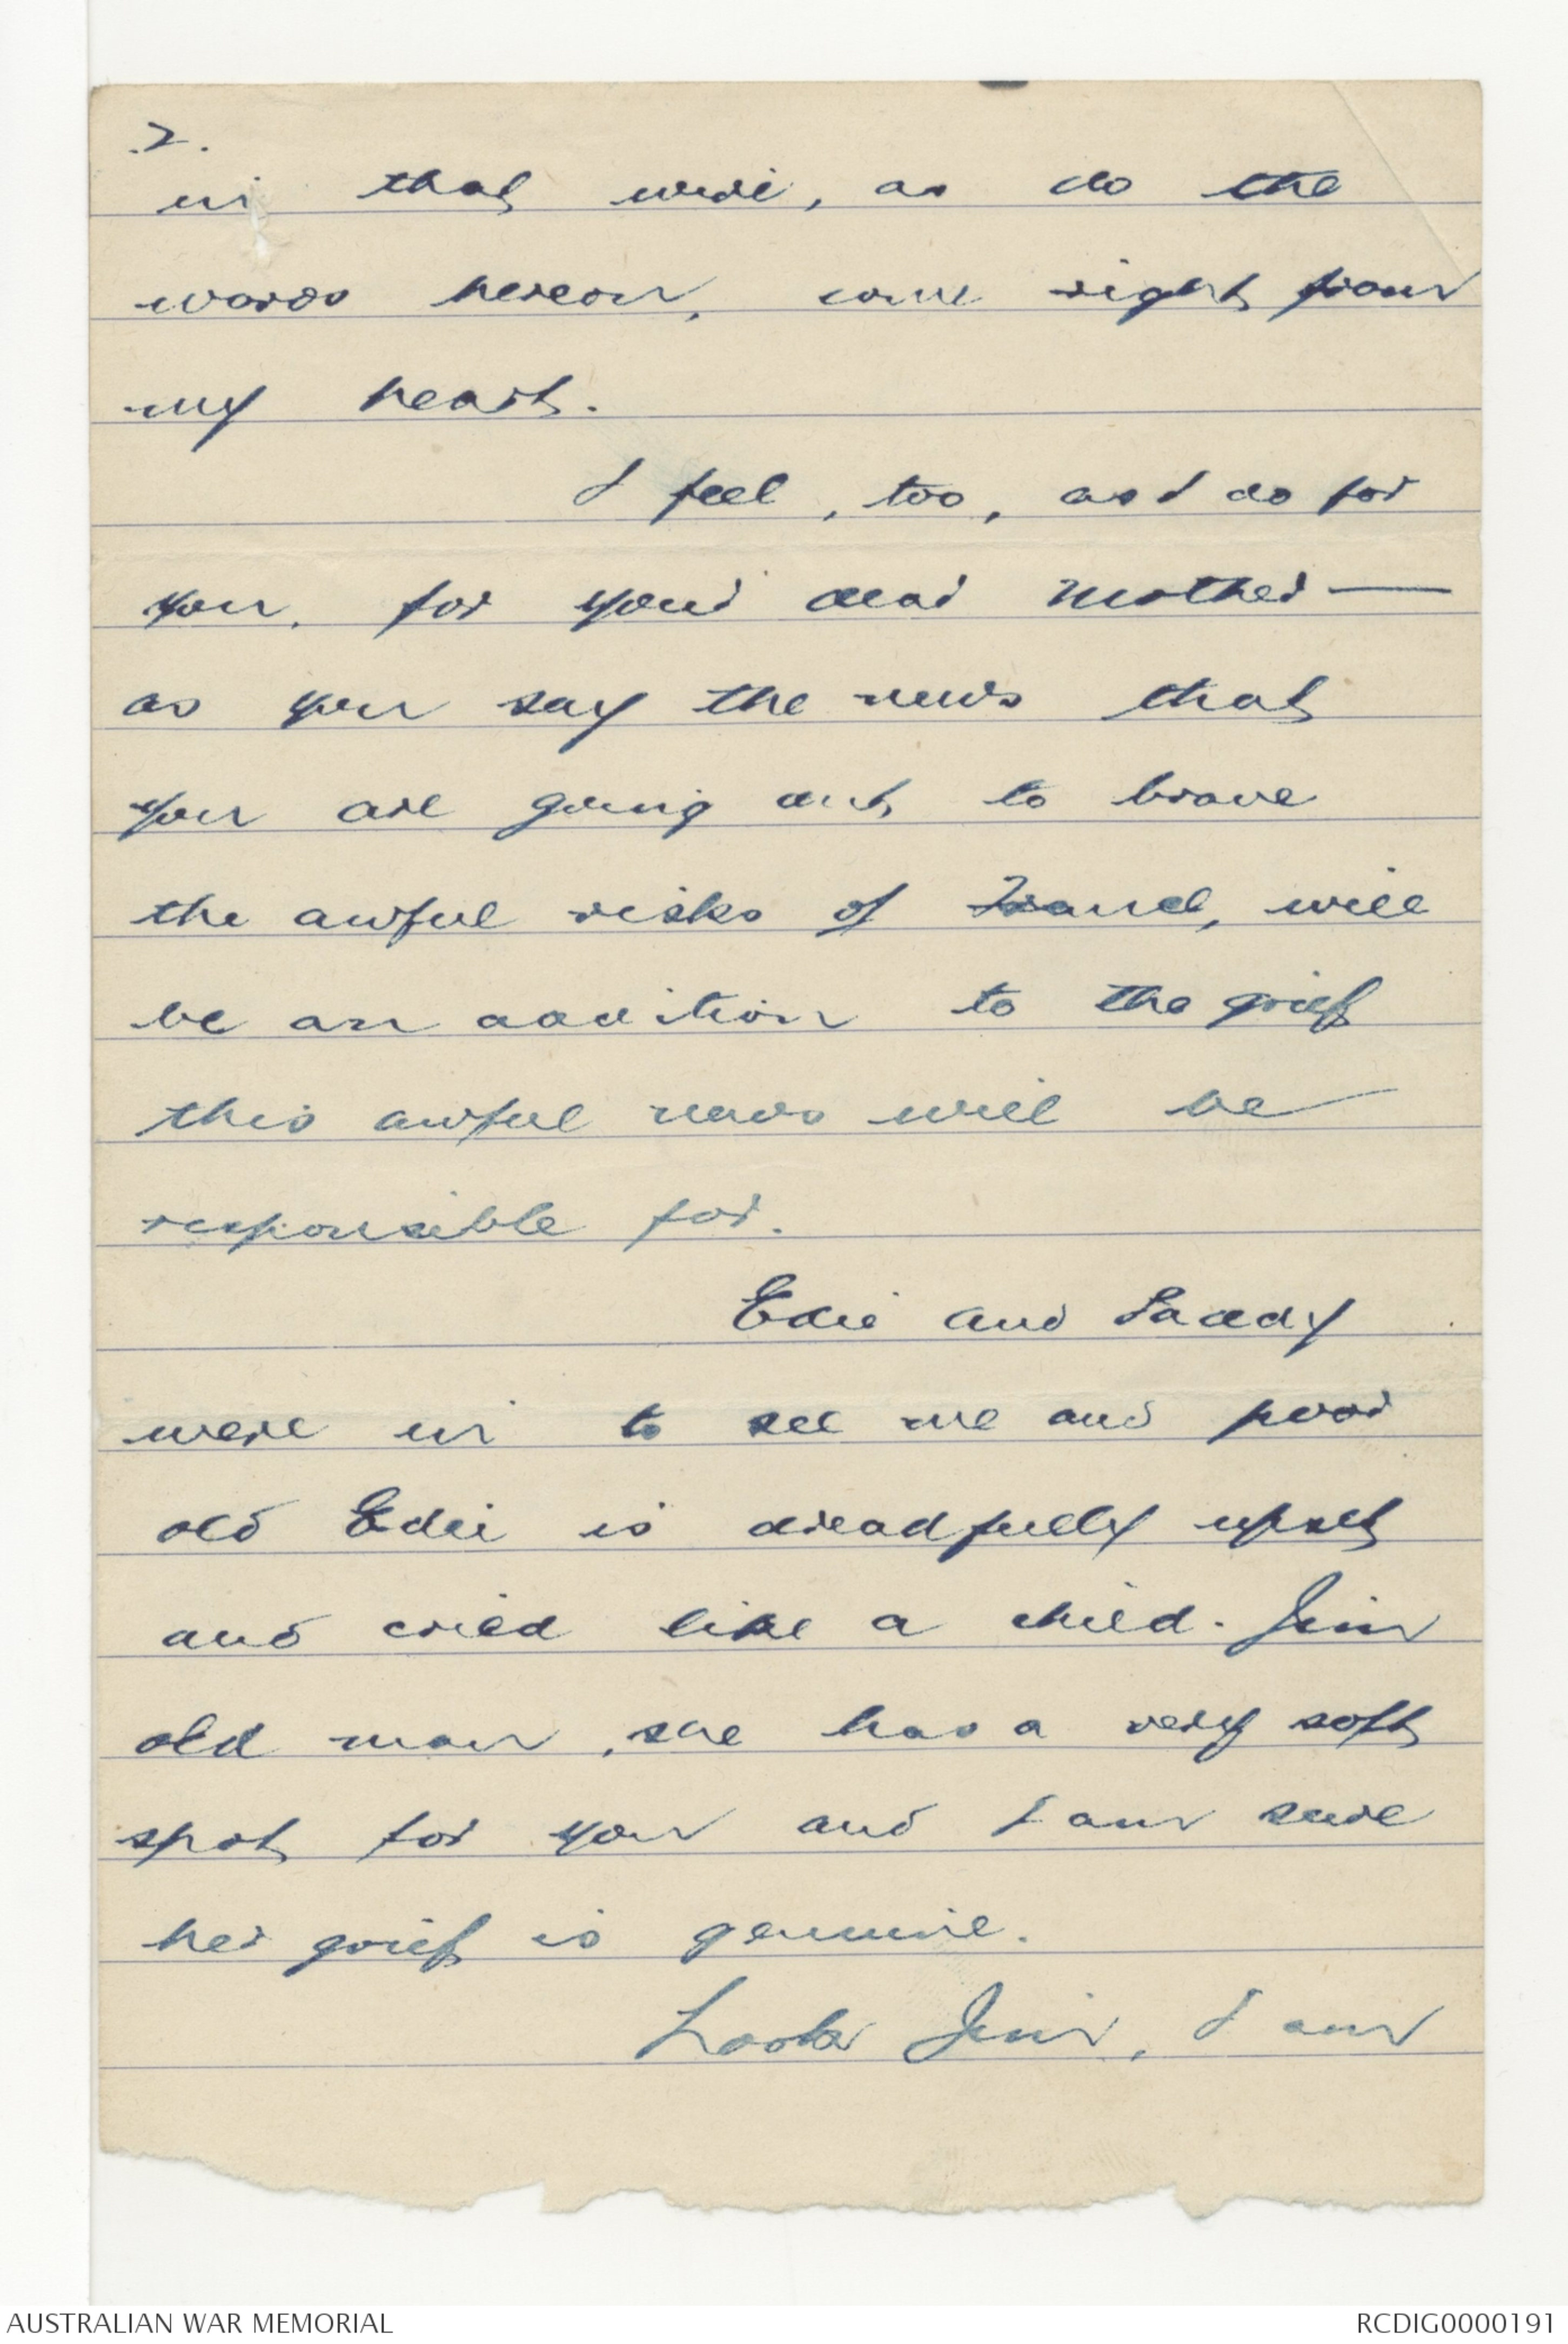 .2.
in that wire, as do the
words hereon, come right from
my heart.
I feel, too, as I do for
you, for your dear Mother —
as you say the news that
you are going out to brave
the awful risks of France, will
be an addition to the grief
this awful news will be
responsible for.
Edie and Paddy
were in to see me and poor
old Edie is dreadfully upset
and cried like a child. Jim
old man, she has a very soft
spot for you and I am sure
her grief is genuine.
Look Jim, I am
AUSTRALIAN WAR MEMORIAL
RCDIG0000191